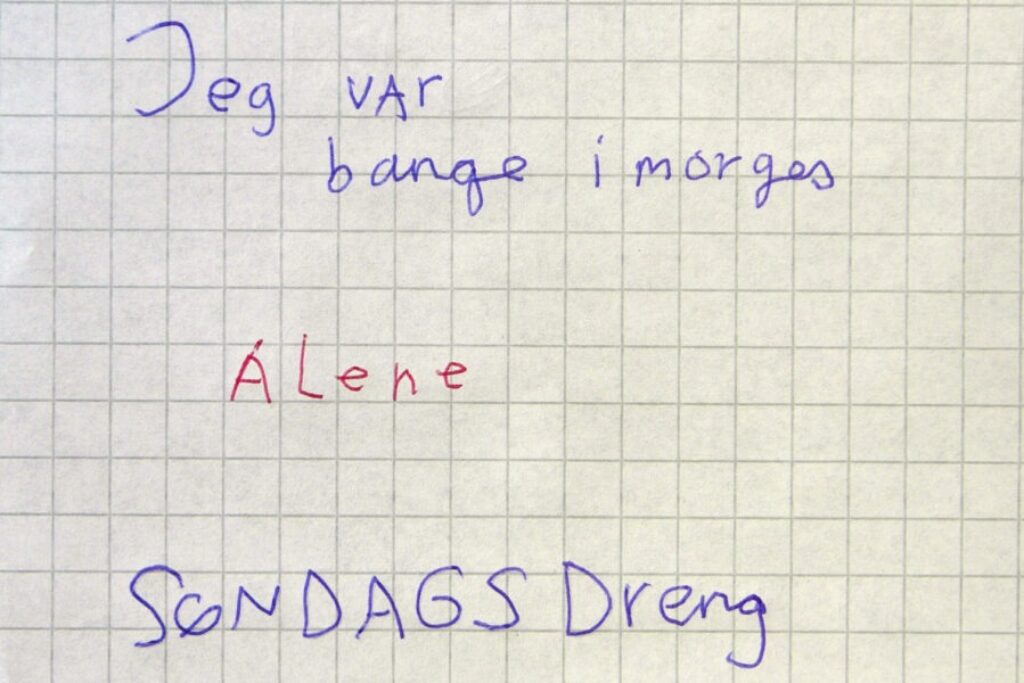 Jeg var
bange i morges
Alene
SØNDAGS Dreng